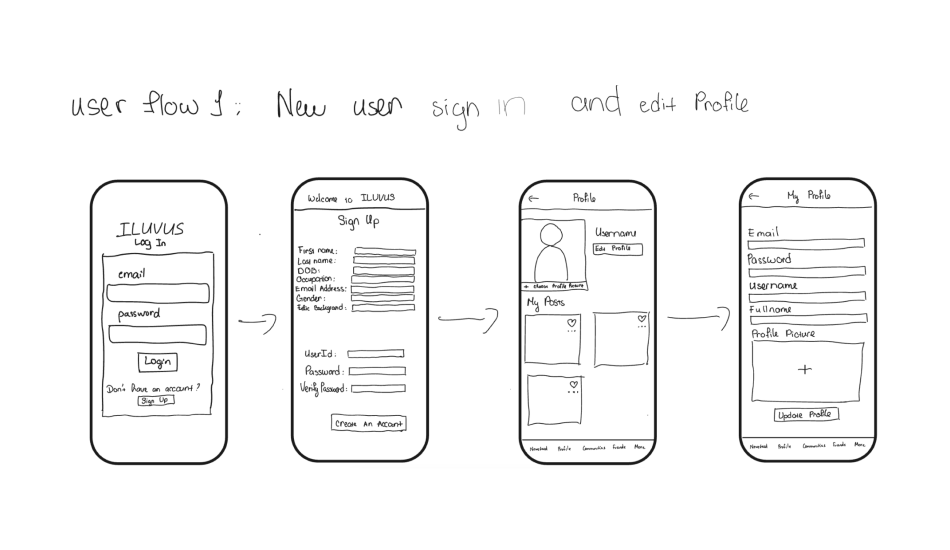 user flow 1: New user sign in and edit Profile
ILUVUS
Log In
email
password
Login
Don't have an account?
Sign Up
Welcome to ILUVUS
Sign Up
First name:
Last name:
DOB:
Occupation:
Email Address:
Gender:
Background:
UserId:
Password:
Verify Password:
Create An Account
← Profile
Username
Edit Profile
+ Choose Profile Picture
My Posts
Newsfeed Profile Communities Events More
← My Profile
Email
Password
Username
Fullname
Profile Picture
+
Update Profile
Newsfeed Profile Communities Events More